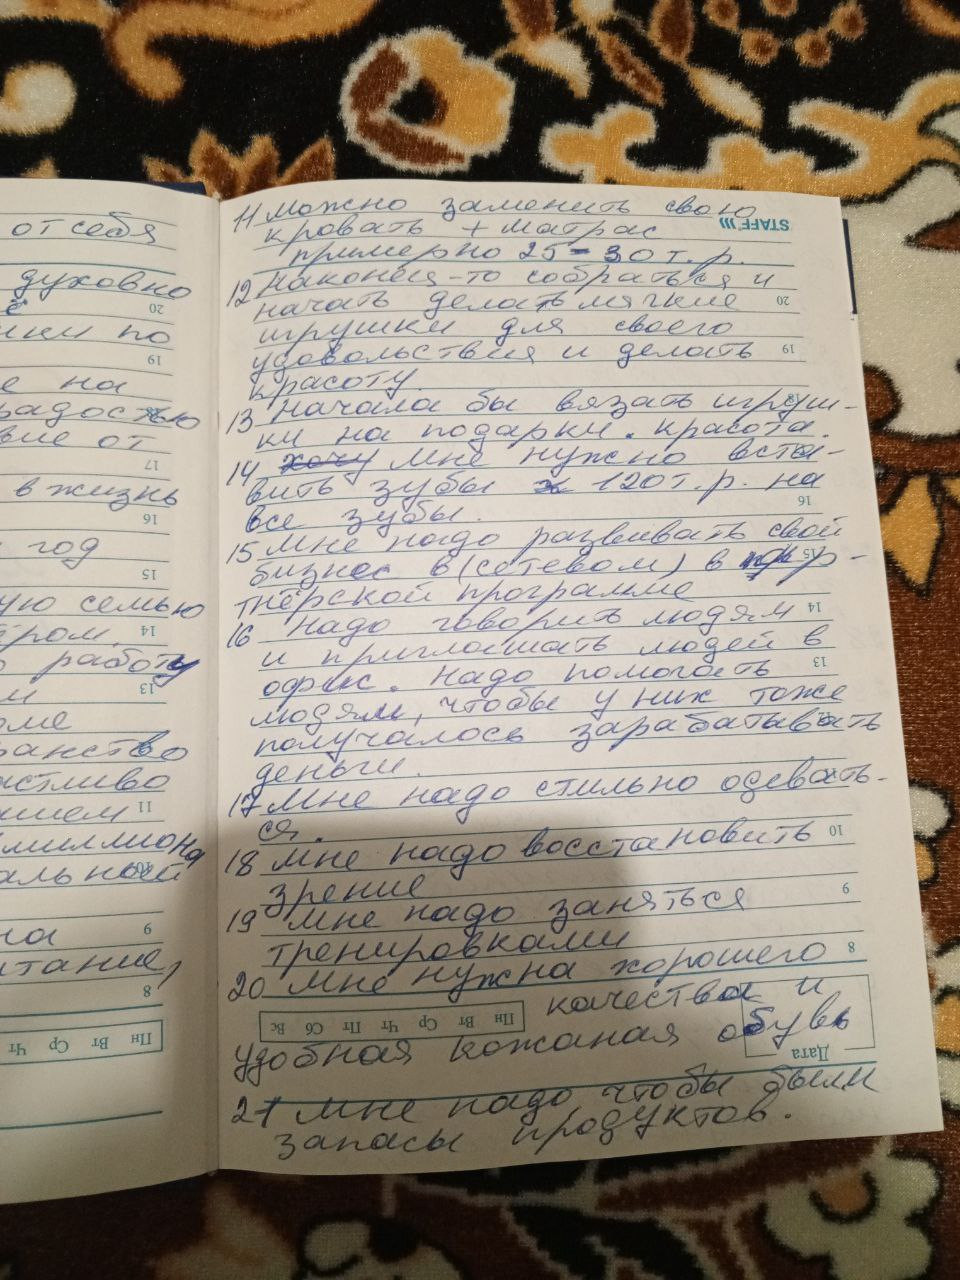 от себя
духовно
ё
нки по
е на
радостью
вие от
в жизнь
год
ую семью
ёром
работу
м
оме
ранство
астливо
нием
миллиона
альной
на
итание,
20
19
18
17
16
15
14
13
11
10
9
8
Пн Вт Ср Чт
STAFF
11 Можно заменить свою
кровать + матрас
примерно 25-30 т.р.
12 Наконец-то собраться и
начать делать мягкие
игрушки для своего
удовольствия и делать
красоту.
13 Начала бы вязать игруш-
ки на подарки. красота.
14 хочу мне нужно вста-
вить зубы 120 т.р. на
все зубы.
15 Мне надо развивать свой
бизнес в (сетевом) в пар-
тнёрской программе
16 Надо говорить людям
и приглашать людей в
офис. Надо помогать
людям, чтобы у них тоже
получалось зарабатывать
деньги.
17 Мне надо стильно одевать-
ся.
18 Мне надо восстановить
зрение
19 Мне надо заняться
тренировками
20 Мне нужна хорошего
качества и
удобная кожаная обувь
21 Мне надо чтобы были
запасы продуктов.
20
19
18
16
15
14
13
10
9
8
Пн Вт Ср Чт Пт Сб Вс
Дата